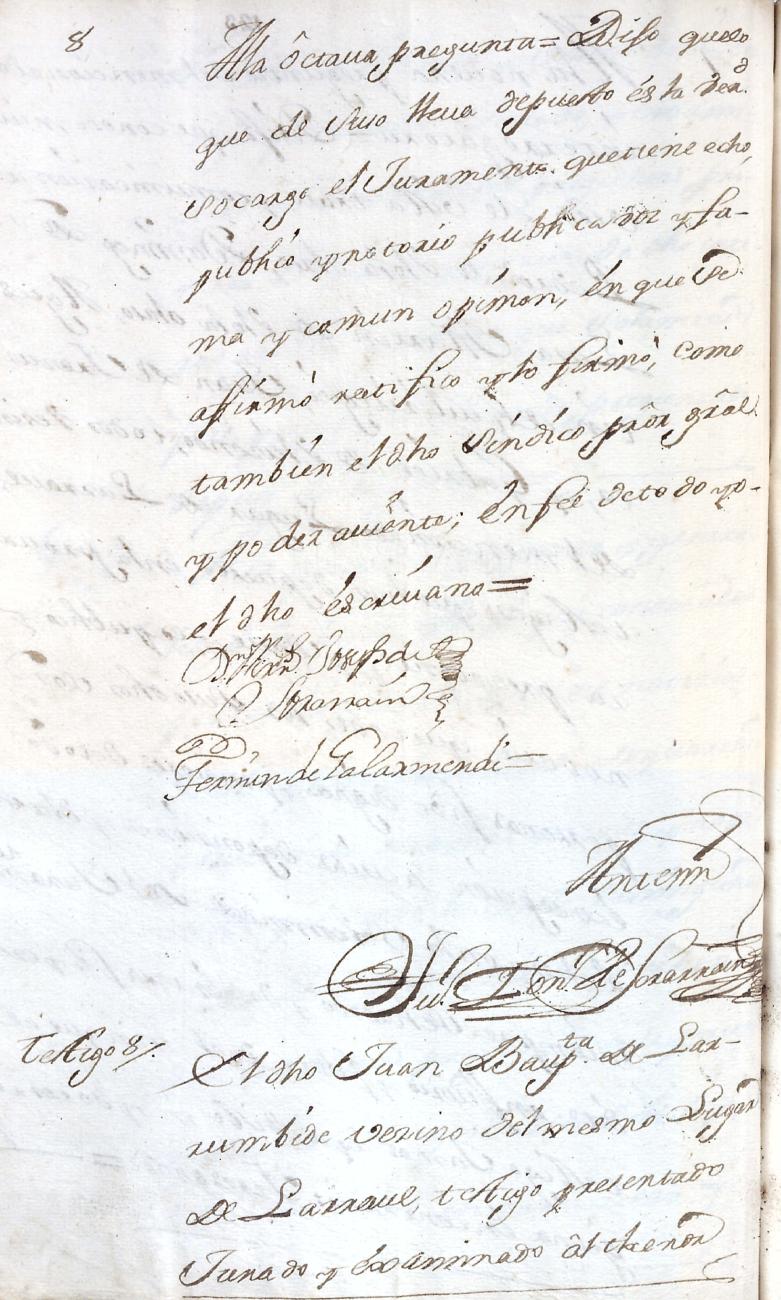 8
A la octaua pregunta = Dijo que lo
que de suso lleua depuesto és la verd.
socargo el Juramento que tiene echo,
publico y notorio publica voz y fa-
ma y comun opinion, én que se
afirmó ratifico y lo firmó, como
tambien el dho Síndíco prõr grãl
y poder auiente; én feé de todo yo-
el dho éscriuano =
Joseph de
Sorarrain
Fermin de Galarmendi =
Antemi
de Sorarrain
Testigo 8/.
El dho Juan Baupta. de Lar-
rumbide vezino del mesmo Lugar
de Larraul, testigo presentado
Jurado y éxaminado ál thenor